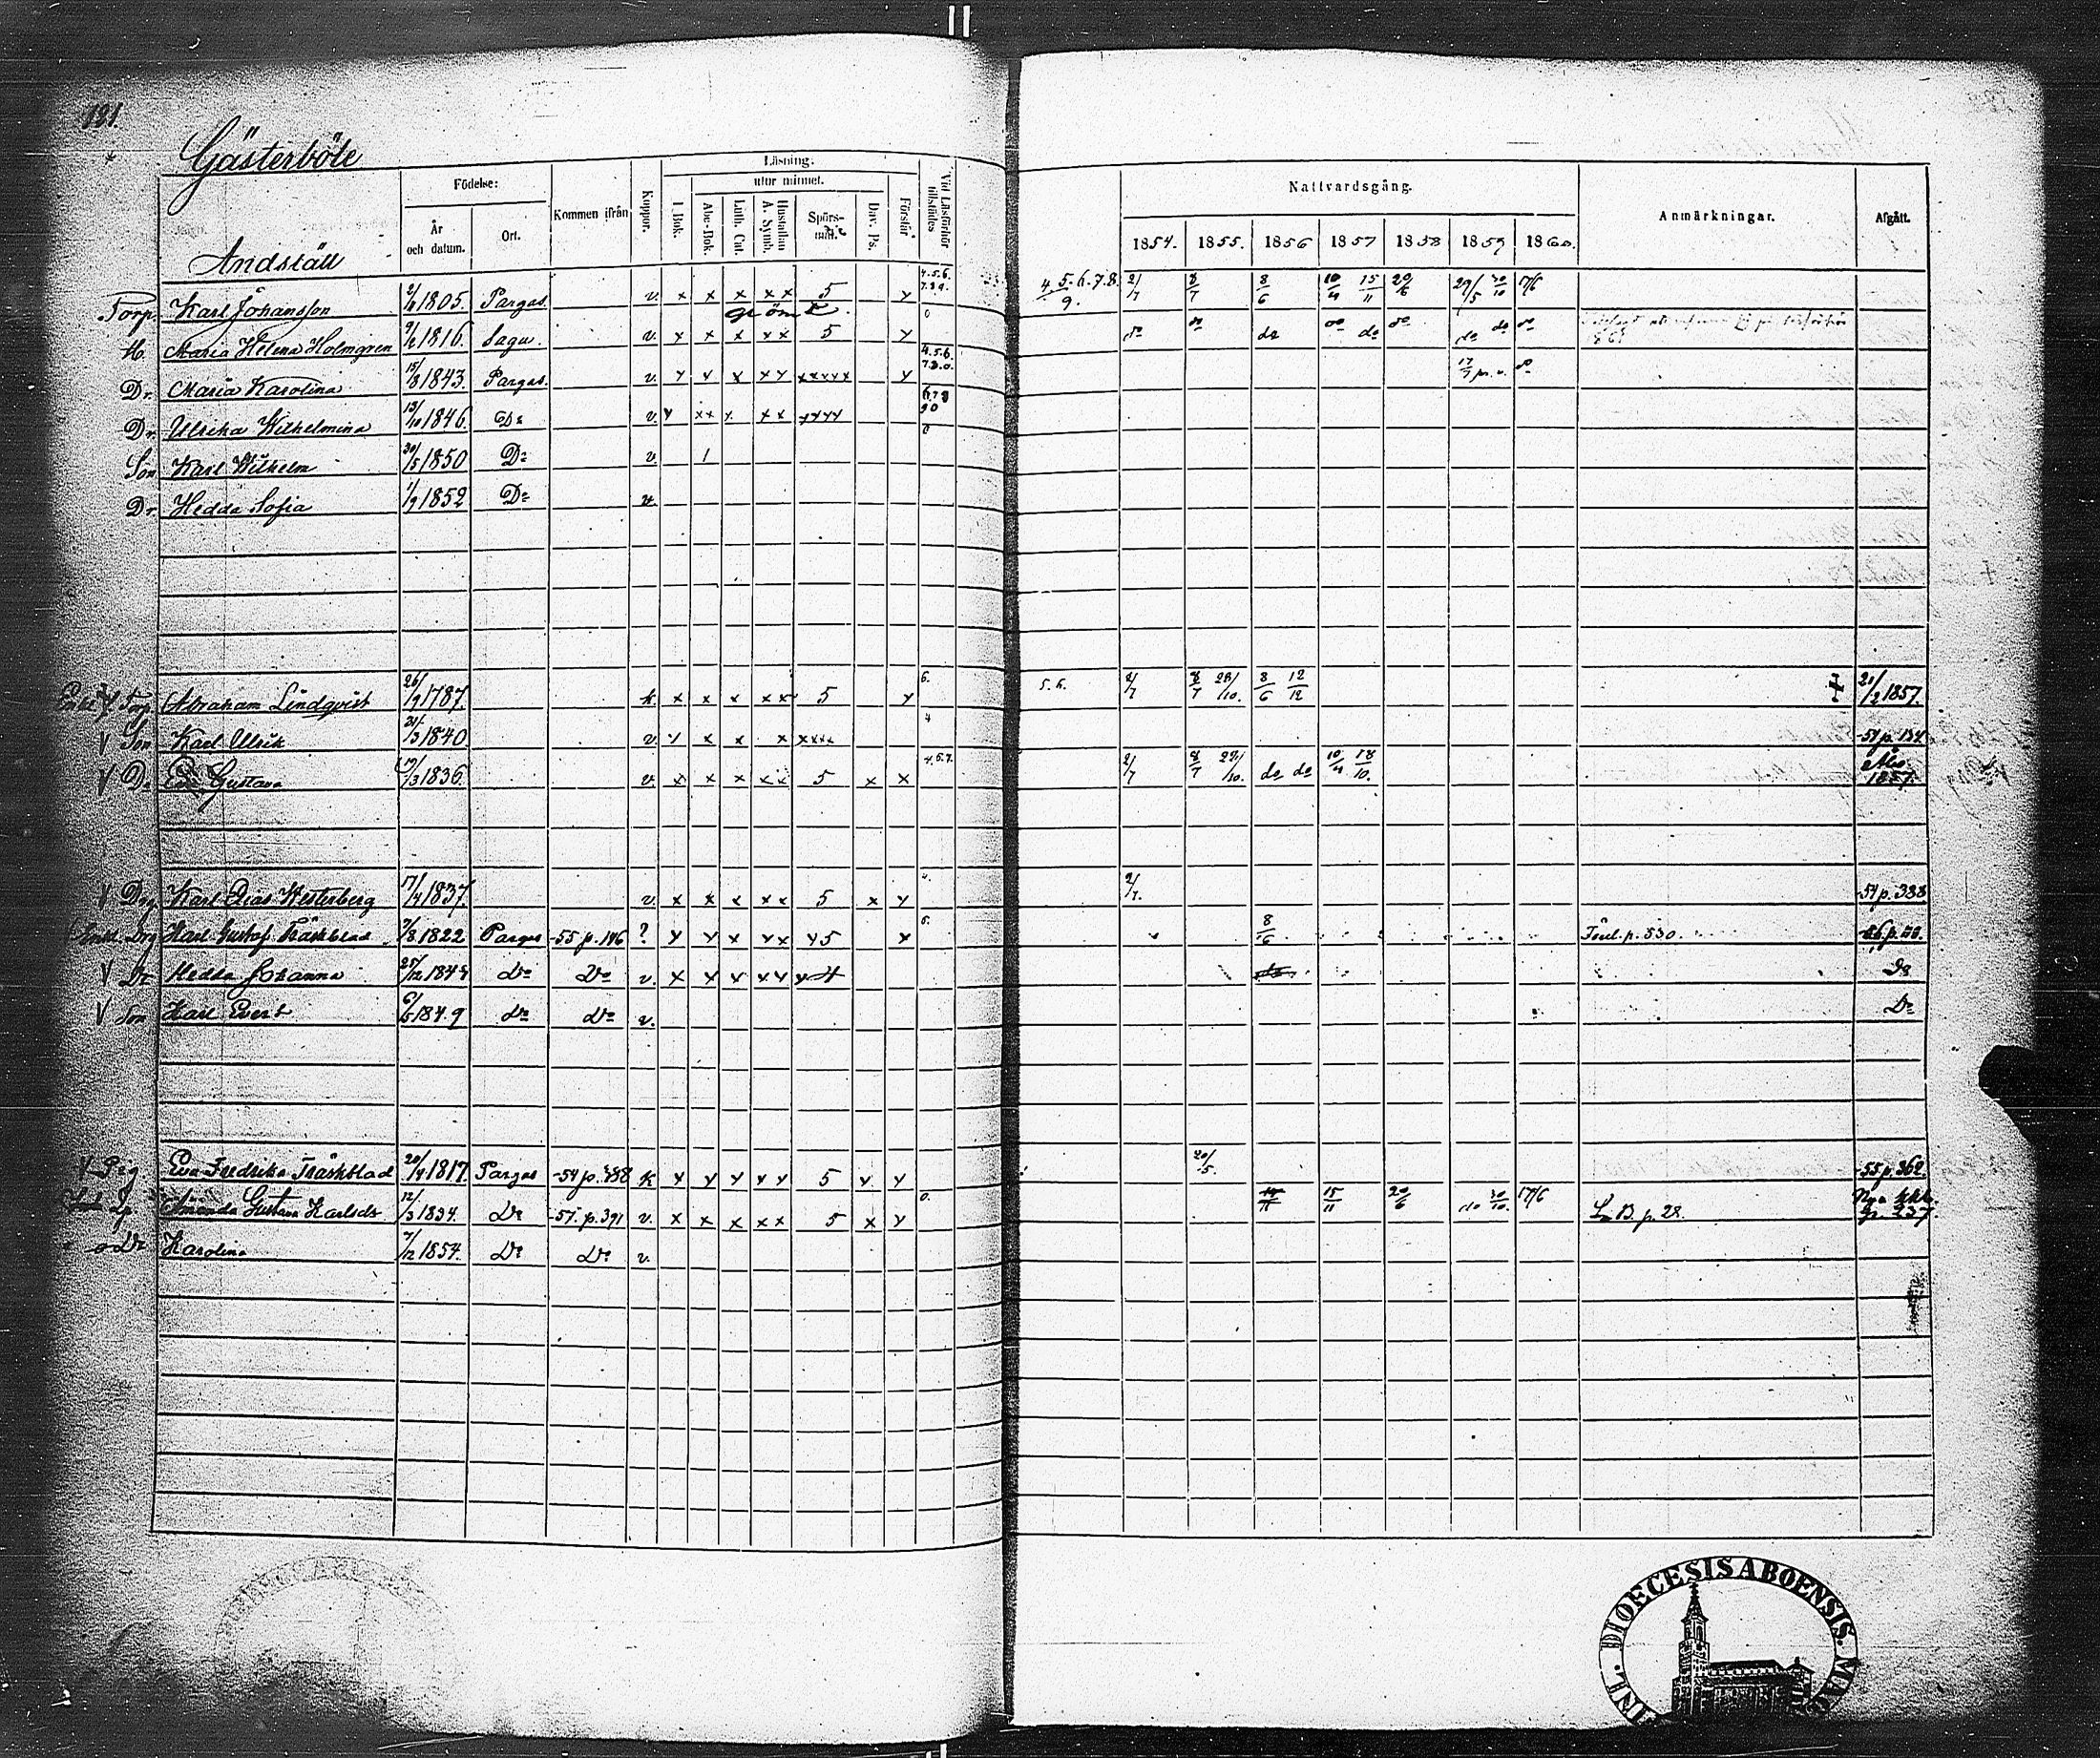 181.
Gästerböle
Andställ
Födelse:
År och datum.
Ort.
Kommen ifrån
Koppor.
Läsning:
utur minnet.
I Bok.
Abc-Bok.
Luth. Cat.
Hustaflan A. Symb.
Spörs-mål.
Dav. Ps.
Förstår
Vid Läsförhör tillstädes
Nattvardsgång.
1854. 1855. 1856 1857 1858 1859 1860.
Anmärkningar.
Afgått.
Torp. Karl Johansson 1805. Pargas. v. x x x x x 5 x 4.5.6. 7.8.9. 4.5.6.7.8. 9. 2/7 8/7 8/6 10/4 15/11 20/6 29/5 30/10 17/6
H. Maria Helena Holmgren 1816. Sagu. v. x x x x x 5 x do do do do do do do do do
Dr. Maria Karolina 15/8 1843. Pargas. v. x x x x x xxxxx x 4.5.6. 7.8.0. 17/7 do
Dr. Ulrika Wilhelmina 13/10 1846. Do v. x xx x x x xxxx 6.7.8 9 0
Son Karl Wilhelm 30/5 1850 Do v. 1
Dr Hedda Sofia 1/9 1852 Do v.
Torp. Abraham Lindqvist 26/9 1787. k x x x x x 5 x 6. 5.6. 2/7 8/7 28/10. 8/6 12/12 21/2 1857.
Son Karl Ulrik 21/3 1840. v. x x x x xxxx 4 -54 p. 134
Dr Eva Gustava 19/3 1836. v. x x x x x 5 x x 4.5.7. 2/7 8/7 28/10. do do 10/4 18/10. Åbo 1857.
Drg Karl Elias Westerberg 17/4 1837. v. x x x x x 5 x x 2/7. -54 p. 388
Enkl. Drg Karl Gustaf Träskblad 7/8 1822 Pargas -55 p. 146 ? x x x x x x 5 x 6. 8/6 p. 530.
Dr Hedda Johanna 25/12 1844 do Do v. x x x x x x 4 do Do
Son Karl Evert 6/5 1849 do do v. Do
Pig Eva Fredrika Träskblad 20/4 1817. Pargas -54 p. 438 k x x x x x 5 x x 20/5. -55 p. 362.
Amanda Gustava Karlsdr 12/3 1834. Do -57. p. 391 v. x x x x x 5 x x 0. 15/11 20/6 do 30/10. 17/6 Ln B. p. 28. Nya kkb. p. 237.
o Dr Karolina 7/12 1854. Do Do v.
DIOECESIS ABOENSIS.